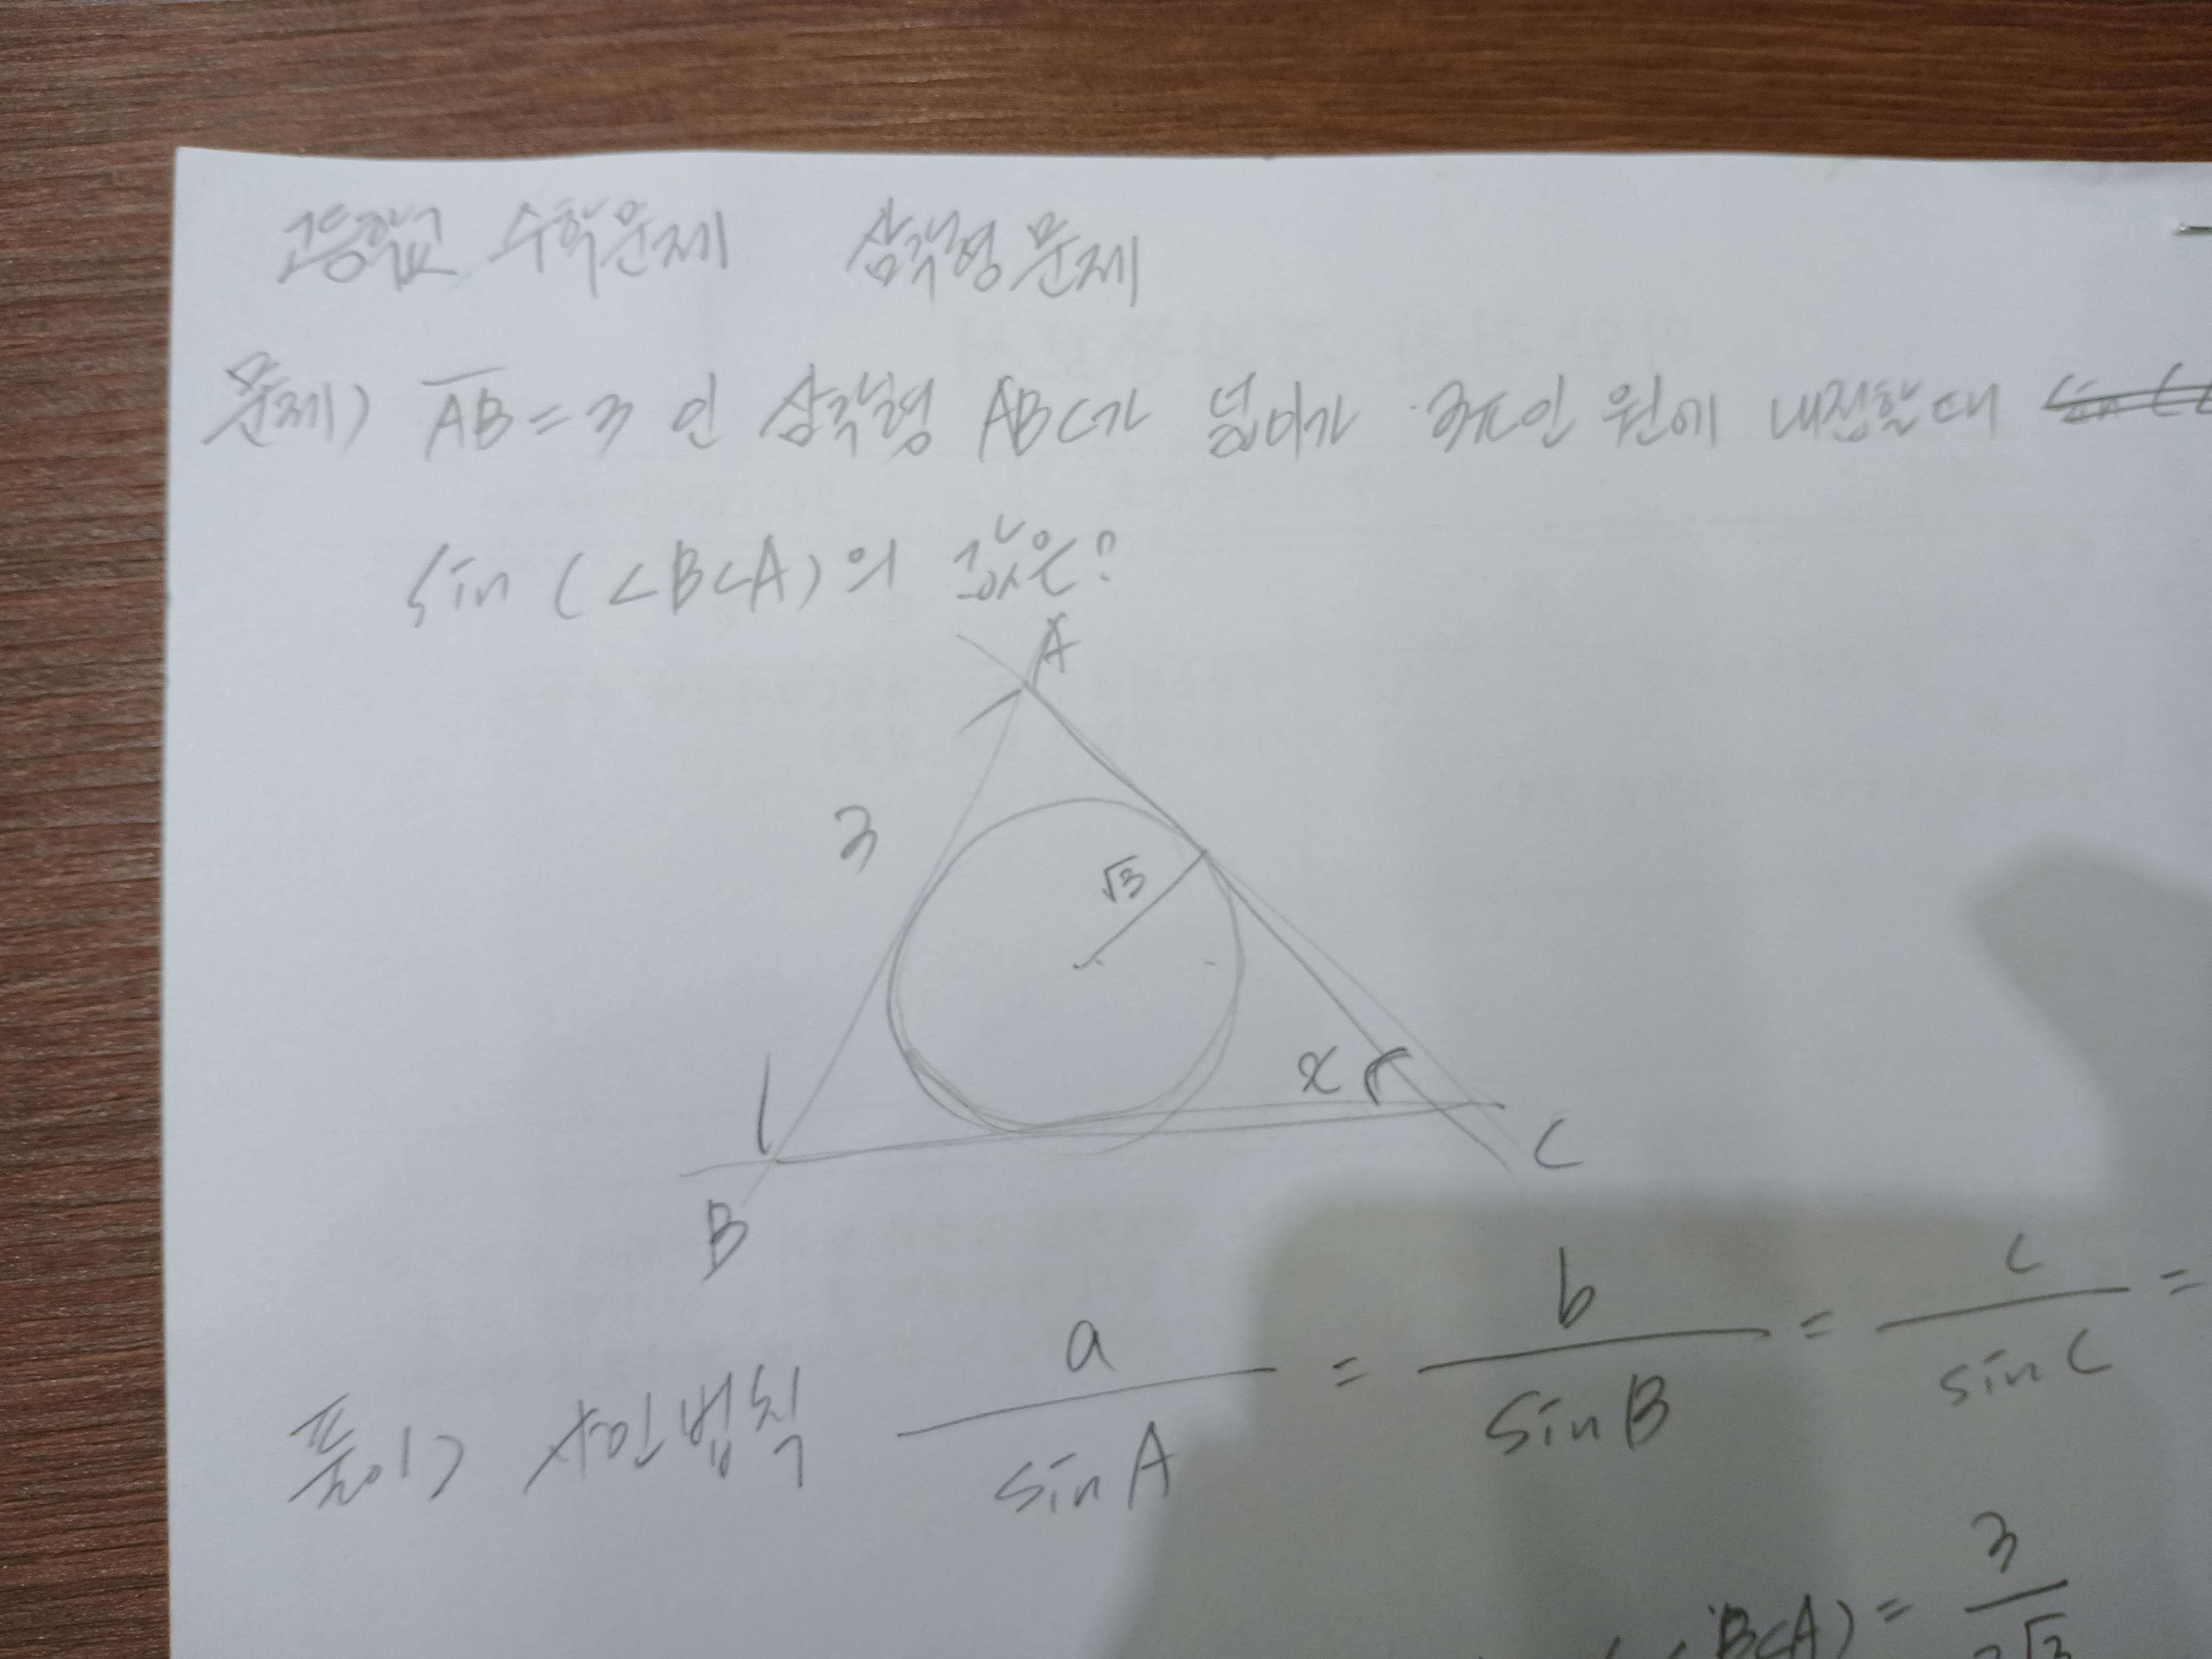 고등학교 수학문제 삼각형 문제
문제) AB = 3 인 삼각형 ABC가 넓이가 3π인 원에 내접할때
sin (<BCA)의 값은?
A
3
√3
x
C
B
풀이) 사인법칙 a/sin A = b/sin B = c/sin C =
BCA) = 3/2√3